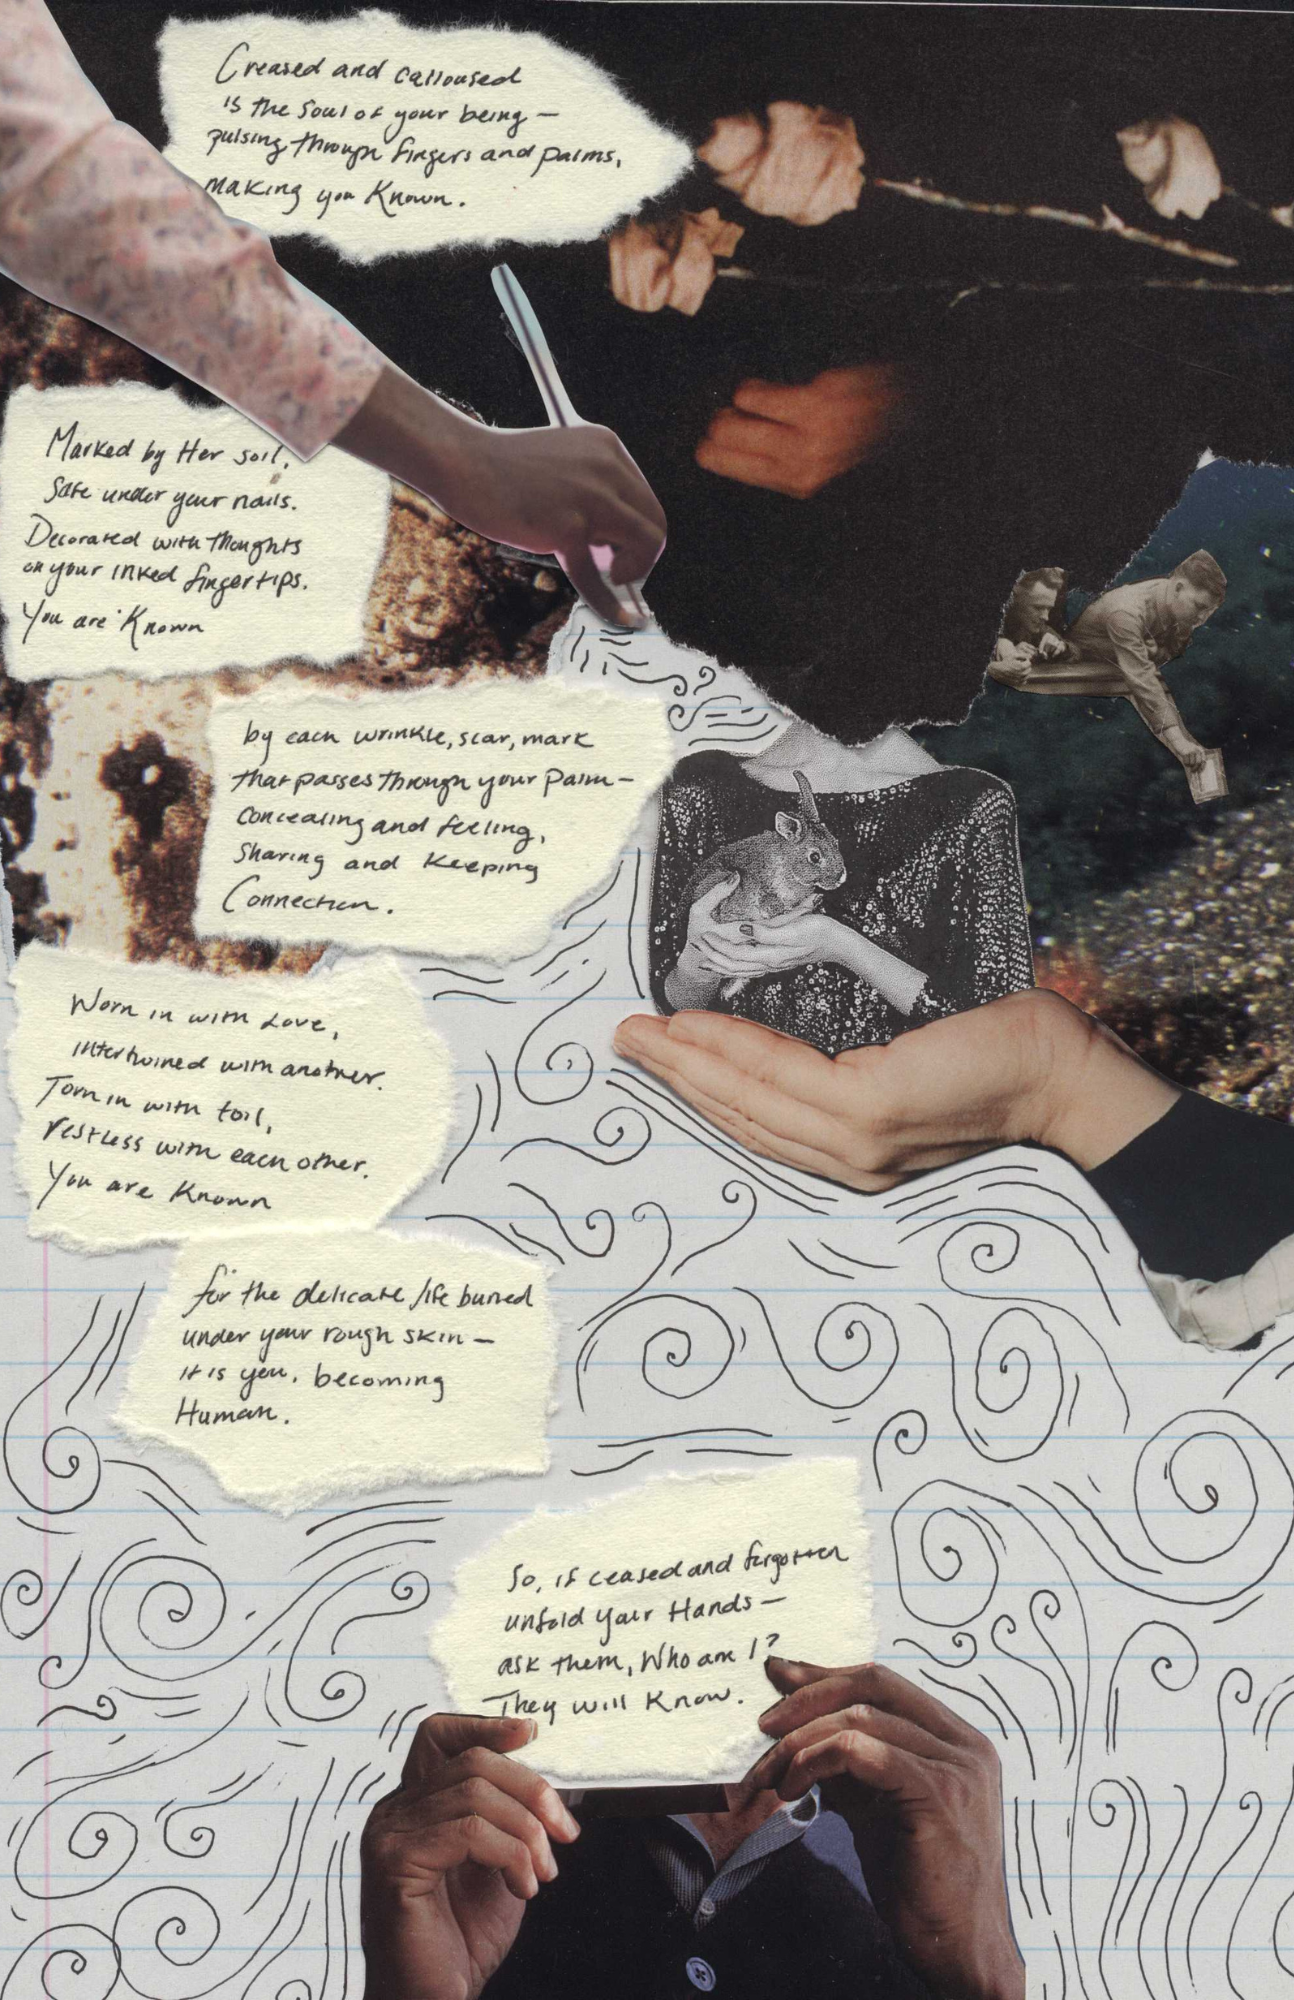 Creased and calloused
is the soul of your being —
pulsing through fingers and palms,
making you Known.
Marked by Her soil,
Safe under your nails.
Decorated with thoughts
on your inked fingertips.
You are Known
by each wrinkle, scar, mark
that passes through your palm —
concealing and feeling,
sharing and keeping
Connection.
Worn in with Love,
intertwined with another.
Torn in with toil,
restless with each other.
You are Known
for the delicate life buried
under your rough skin —
it is you, becoming
Human.
So, if ceased and forgotten
unfold your Hands —
ask them, Who am I?
They will Know.